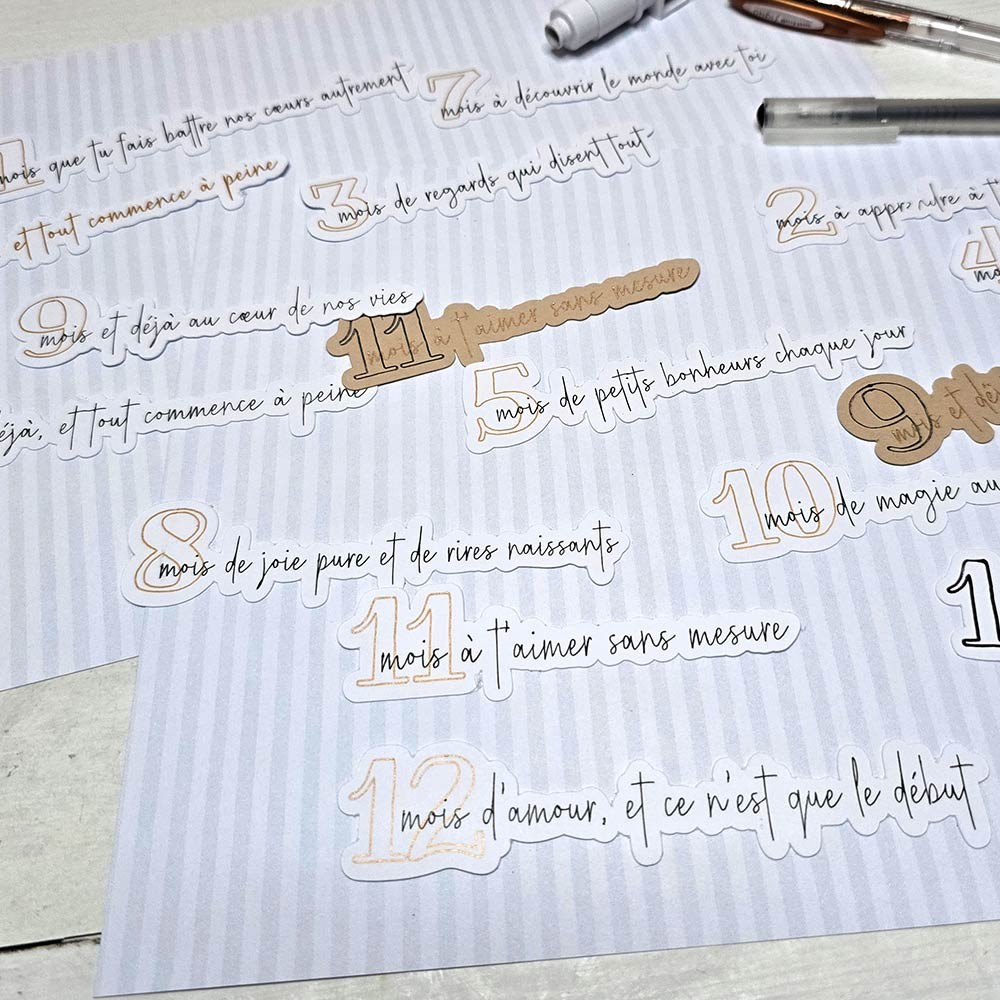 1 mois que tu fais battre nos cœurs autrement
7 mois à découvrir le monde avec toi
et tout commence à peine
3 mois de regards qui disent tout
2 mois à apprendre à
4
9 mois et déjà au cœur de nos vies
11 mois à t'aimer sans mesure
déjà, et tout commence à peine
5 mois de petits bonheurs chaque jour
9 mois et
10 mois de magie au
8 mois de joie pure et de rires naissants
11 mois à t'aimer sans mesure
1
12 mois d'amour, et ce n'est que le début